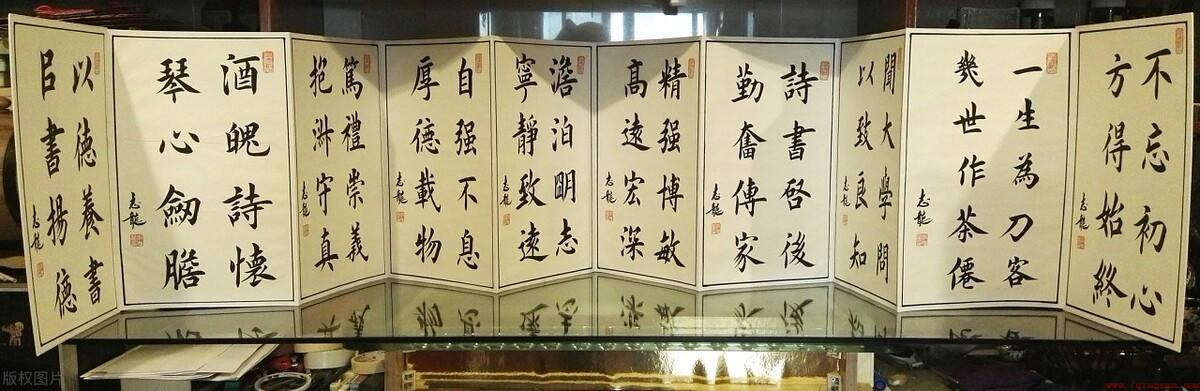 不忘初心
方得始終
志龍
一生為刀客
幾世作茶僊
志龍
聞大學問
以致良知
志龍
詩書啓後
勤奮傳家
志龍
精强博敏
高遠宏深
志龍
澹泊朙志
寧靜致遠
志龍
自强不息
厚德載物
志龍
篤禮崇義
抱淑守真
志龍
酒魄詩懷
琴心劒膽
志龍
以德養書
㠯書揚德
志龍
版权图片